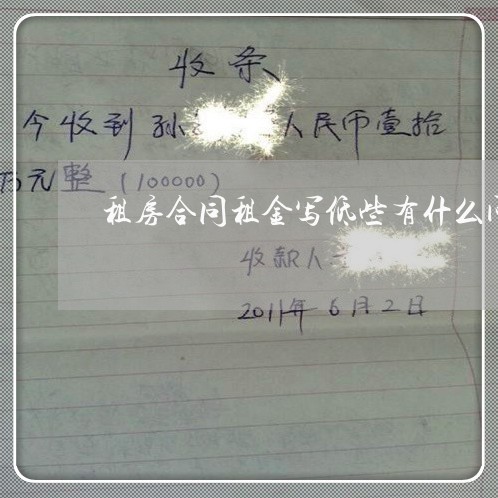 收条
今收到孙 人民币壹拾
万元整（100000）
租房合同租金写低些有什么
收款人
2011年6月2日